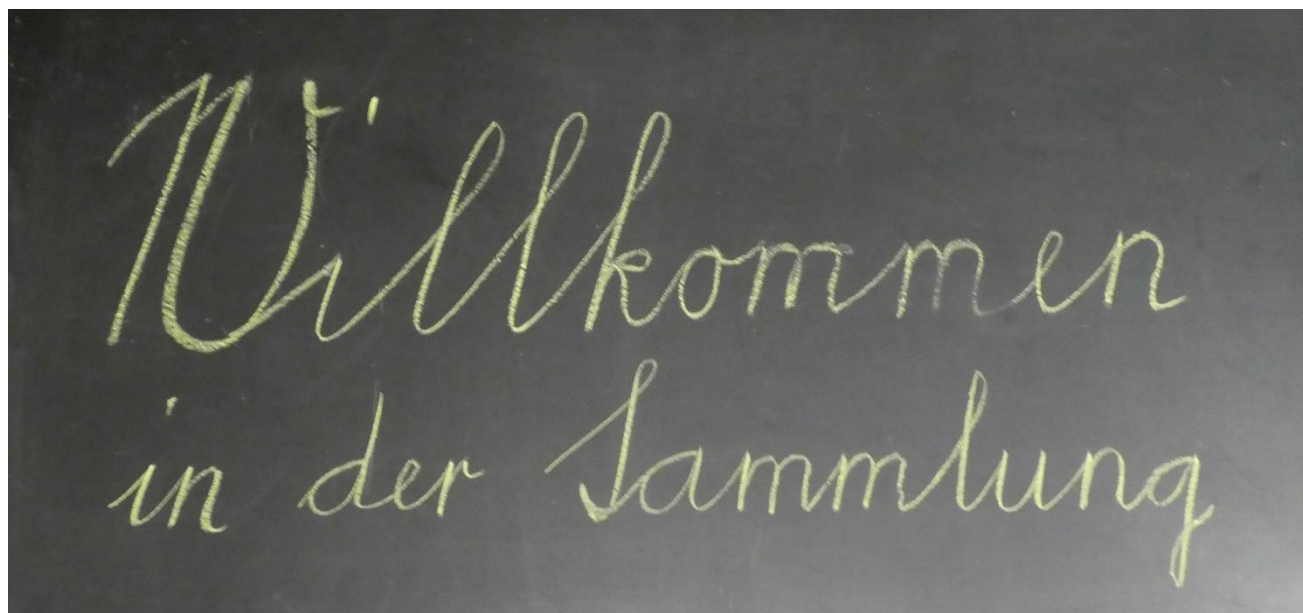 Willkommen
in der Sammlung